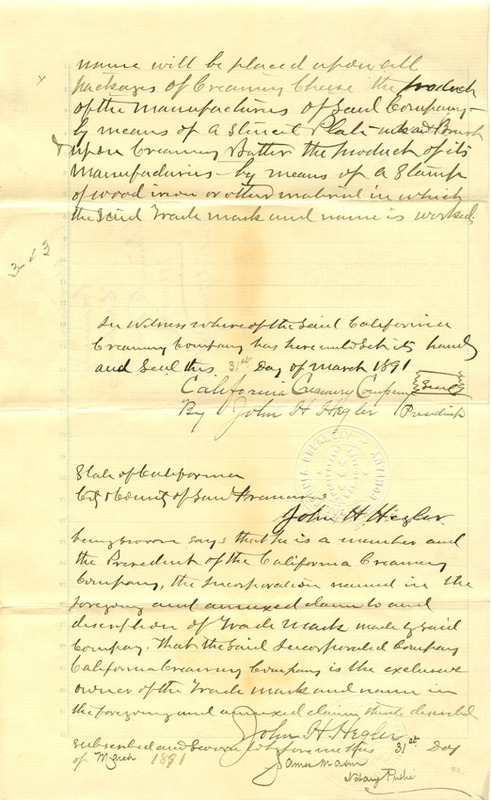 name will be placed upon all
x packages of Creamery Cheese the product
of the manufactures of Said Company -
by means of a Stencil Plate and Brush
& upon Creamery Butter the product of its
Manufacturies - by means of a Stamp
of wood iron or other material in which
the Said Trade mark and name is worked
In Witness where of the Said California
Creamery Company has here unto Set its hand
and Seal this 31st Day of March 1891
California Creamery Company Seal
By John H Hegler President
State of California
City & County of San Francisco
John H Hegler
being sworn says that he is a member and
the President of the California Creamery
Company, the Incorporation named in the
foregoing and annexed claim to and
description of Trade Mark made by said
Company. That the Said Incorporated Company
California Creamery Company is the exclusive
owner of the Trade mark and name in
the foregoing and annexed claim there described
John H Hegler
Subscribed and Sworn to before me this 31st Day
of March 1891
James Mason
Notary Public